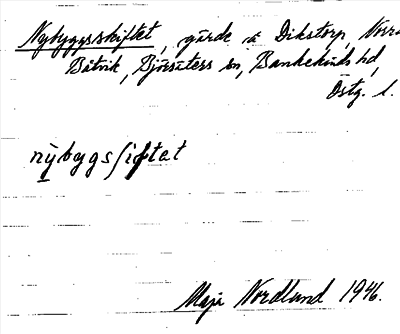 Nybyggsskiftet, gärde å Dikstorp, Norra
Båtvik, Björsäters sn, Bankekinds hd,
Östg. l.
nybygsʃiftet
Maja Nordlund 1946.